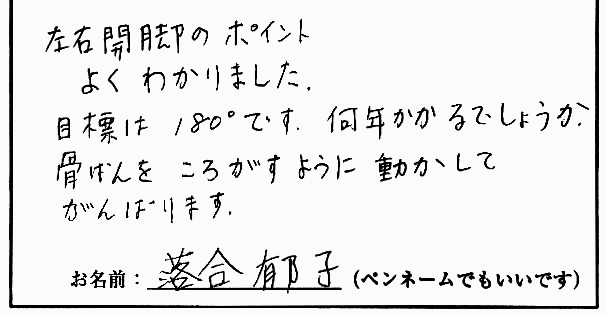 左右開脚のポイント
よくわかりました.
目標は180°です.何年かかるでしょうか.
骨ばんをころがすように動かして
がんばります.
お名前:落合郁子(ペンネームでもいいです)